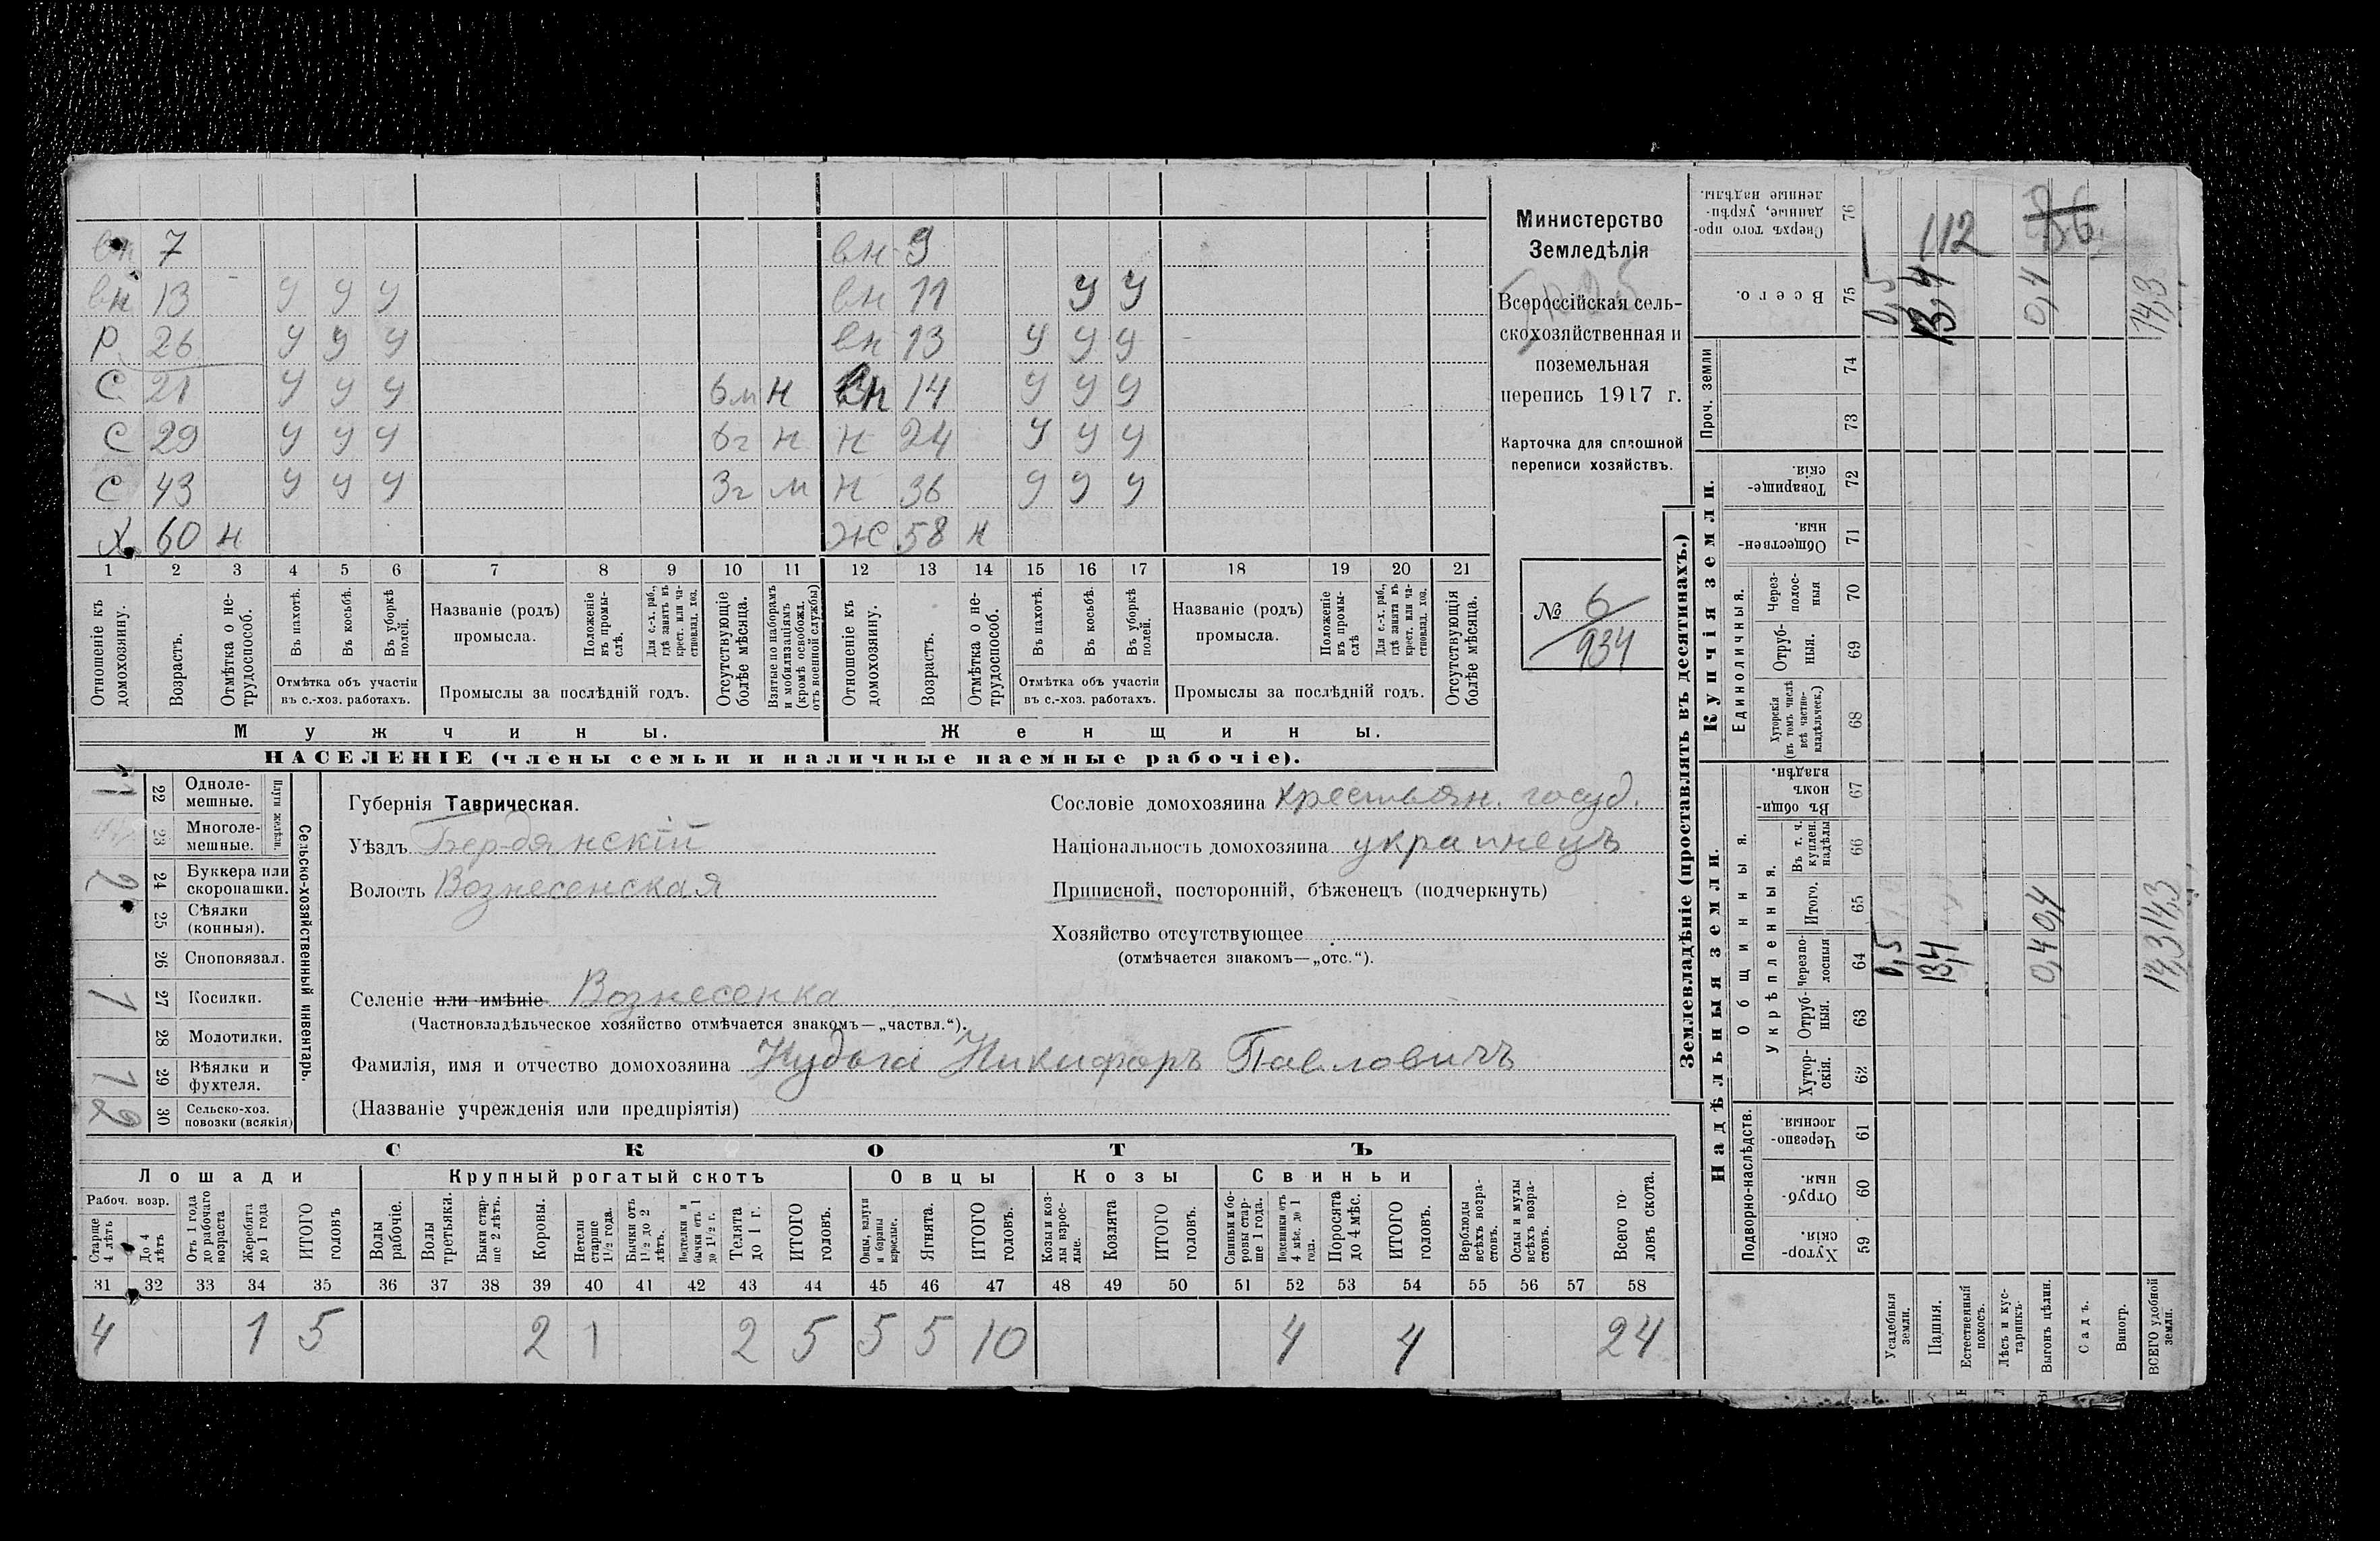 вн 7 вн 9
вн 13 у у у вн 11 у у
Р 26 у у у вн 13 у у у
С 21 у у у 6м н вн 14 у у у
С 29 у у у 6г н н 24 у у у
С 43 у у у 3г м н 36 у у у
Х 60 н Ж 58 н
1 2 3 4 5 6 7 8 9 10 11 12 13 14 15 16 17 18 19 20 21
Отношеніе къ домохозяину.
Возрастъ.
Отмѣтка о не-
трудоспособ.
Въ пахотѣ.
Въ косьбѣ.
Въ уборкѣ
полей.
Отмѣтка объ участіи
въ с.-хоз. работахъ.
Названіе (родъ)
промысла.
Положеніе
въ промы-
слѣ.
Для с.-х. раб.,
гдѣ занятъ въ
крест. или ча-
стновлад. хоз.
Промыслы за послѣдній годъ.
Отсутствующіе
болѣе мѣсяца.
Взятые по наборамъ
и мобилизаціямъ
(кромѣ освобожд.
отъ военной службы)
Отношеніе къ
домохозяину.
Возрастъ.
Отмѣтка о не-
трудоспособ.
Въ пахотѣ.
Въ косьбѣ.
Въ уборкѣ
полей.
Отмѣтка объ участіи
въ с.-хоз. работахъ.
Названіе (родъ)
промысла.
Положеніе
въ промы-
слѣ
Для с.-х. раб.,
гдѣ занята въ
крест. или ча-
стновлад. хоз.
Промыслы за послѣдній годъ.
Отсутствующія
болѣе мѣсяца.
Мужчины.
Женщины.
НАСЕЛЕНІЕ (члены семьи и наличные наемные рабочіе).
Министерство
Земледѣлія
Всероссійская сель-
скохозяйственная и
поземельная
перепись 1917 г.
Карточка для сплошной
переписи хозяйствъ.
№ 6
934
Сельско-хозяйственный инвентарь.
Плуги желѣзн.
1 22 Одноле-
мешные.
23 Многоле-
мешные.
2 24 Буккера или
скоропашки.
25 Сѣялки
(конныя).
26 Сноповязал.
1 27 Косилки.
28 Молотилки.
1 29 Вѣялки и
фухтеля.
2 30 Сельско-хоз.
повозки (всякія)
Губернія Таврическая.
Уѣздъ Бердянскій
Волость Вознесенская
Сословіе домохозяина крестьян. госуд.
Національность домохозяина украинецъ
Приписной, посторонній, бѣженецъ (подчеркнуть)
Хозяйство отсутствующее
(отмѣчается знакомъ—„отс.“).
Селеніе или имѣніе Вознесенка
(Частновладѣльческое хозяйство отмѣчается знакомъ—„частвл.“).
Фамилія, имя и отчество домохозяина Кудога Никифоръ Павловичъ
(Названіе учрежденія или предпріятія)
СКОТЪ
Лошади Крупный рогатый скотъ Овцы Козы Свиньи
Рабоч. возр.
Старше
4 лѣтъ
До 4
лѣтъ
Отъ 1 года
до рабочаго
возраста
Жеребята
до 1 года
ИТОГО
головъ
Волы
рабочіе.
Волы
третьяки.
Быки стар-
ше 2 лѣтъ.
Коровы.
Нетели
старше
1½ года.
Бычки отъ
1½ до 2
лѣтъ.
Подтелки и
бычки отъ 1
до 1½ г.
Телята
до 1 г.
ИТОГО
головъ.
Овцы, валухи
и бараны
взрослые.
Ягнята.
ИТОГО
головъ.
Козы и коз-
лы взрос-
лые.
Козлята
ИТОГО
головъ.
Свиньи и бо-
ровы стар-
ше 1 года.
Подсвинки отъ
4 мѣс. до 1
года.
Поросята
до 4 мѣс.
ИТОГО
головъ.
Верблюды
всѣхъ возра-
стовъ.
Ослы и мулы
всѣхъ возра-
стовъ.
Всего го-
ловъ скота.
31 32 33 34 35 36 37 38 39 40 41 42 43 44 45 46 47 48 49 50 51 52 53 54 55 56 57 58
4 1 5 2 1 2 5 5 5 10 4 4 24
Землевладѣніе (проставлять въ десятинахъ.)
Купчія земли.
Надѣльныя земли.
Сверхъ того про-
данные, укрѣп-
ленные надѣлы.
76
112
Всего.
75
0,5 13,4 0,4 14,3
Проч. земли
74
73
Товарище-
скія.
72
Обществен-
ныя.
71
Единоличныя.
Через-
полос-
ныя
70
Отруб-
ныя.
69
Хуторскія
(въ томъ числѣ
всѣ частно-
владѣльческ.)
68
Общинныя.
Въ общин-
номъ
владѣн.
67
Укрѣпленныя.
Въ т. ч.
куплен.
надѣлы
66
Итого.
65
0,4 14,3
Черезпо-
лосныя
64
0,5 13,4 0,4 14,3
Отруб-
ныя.
63
Хутор-
скія.
62
Подворно-наслѣдств.
Черезпо-
лосныя.
61
Отруб-
ныя.
60
Хутор-
скія.
59
Усадебныя
земли.
Пашня.
Естественный
покосъ.
Лѣсъ и кус-
тарникъ.
Выгонъ цѣлин.
Садъ.
Виногр.
ВСЕГО удобной
земли.